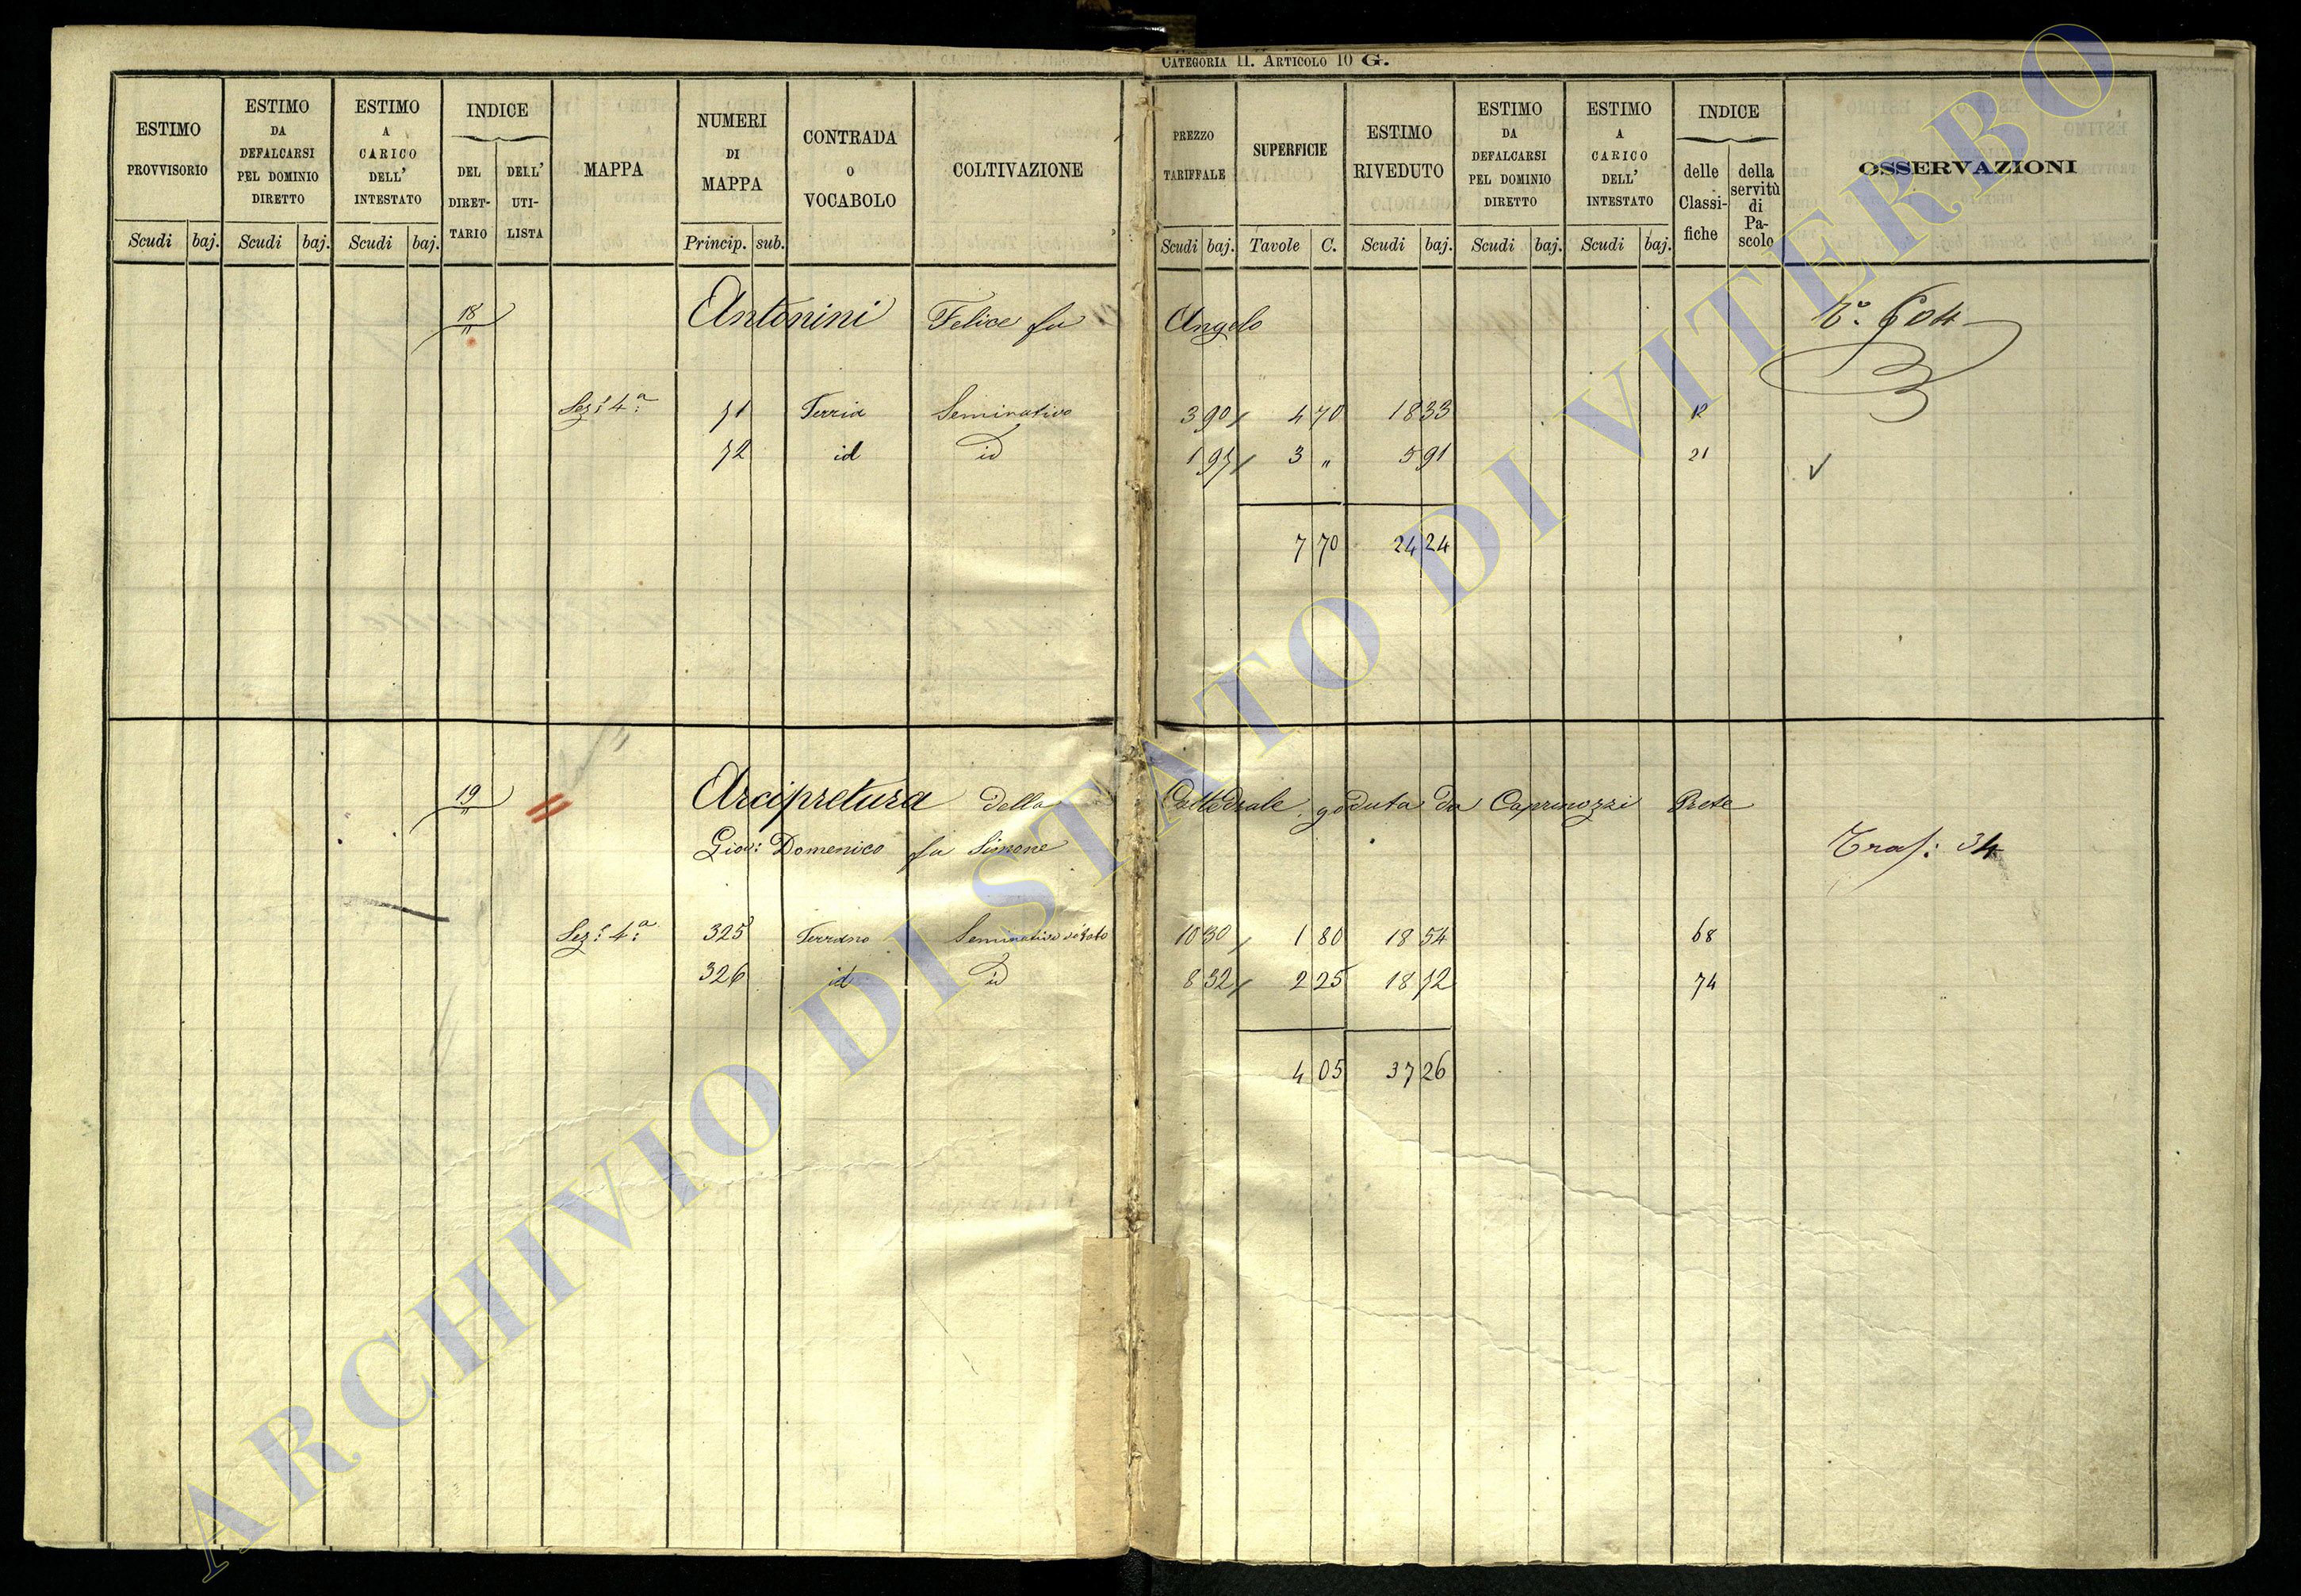 CATEGORIA II. ARTICOLO 10 G.
ESTIMO PROVVISORIO
ESTIMO DA DEFALCARSI PEL DOMINIO DIRETTO
ESTIMO A CARICO DELL' INTESTATO
INDICE
DEL DIRETTARIO
DELL' UTILISTA
MAPPA
NUMERI DI MAPPA
CONTRADA O VOCABOLO
COLTIVAZIONE
PREZZO TARIFFALE
SUPERFICIE
ESTIMO RIVEDUTO
ESTIMO DA DEFALCARSI PEL DOMINIO DIRETTO
ESTIMO A CARICO DELL' INTESTATO
INDICE
delle Classifiche
della servitù di Pascolo
OSSERVAZIONI
Scudi baj. Scudi baj. Scudi baj. Princip. sub. Scudi baj. Tavole C. Scudi baj. Scudi baj. Scudi baj.
18 Antonini Felice fu Angelo N.° 604
Sez.e 4.a 71 Terria Seminativo 3 90 4 70 18 33 12
72 id id 1 97 3 " 5 91 21
7 70 24 24
19 Arcipretura della Cattedrale goduta da Caprinozzi Prete
Giov: Domenico fu Simone Tras: 34
Sez.e 4.a 325 Terrano Seminativo vitato 10 30 1 80 18 54 68
326 id id 8 32 2 25 18 72 74
4 05 37 26
ARCHIVIO DI STATO DI VITERBO